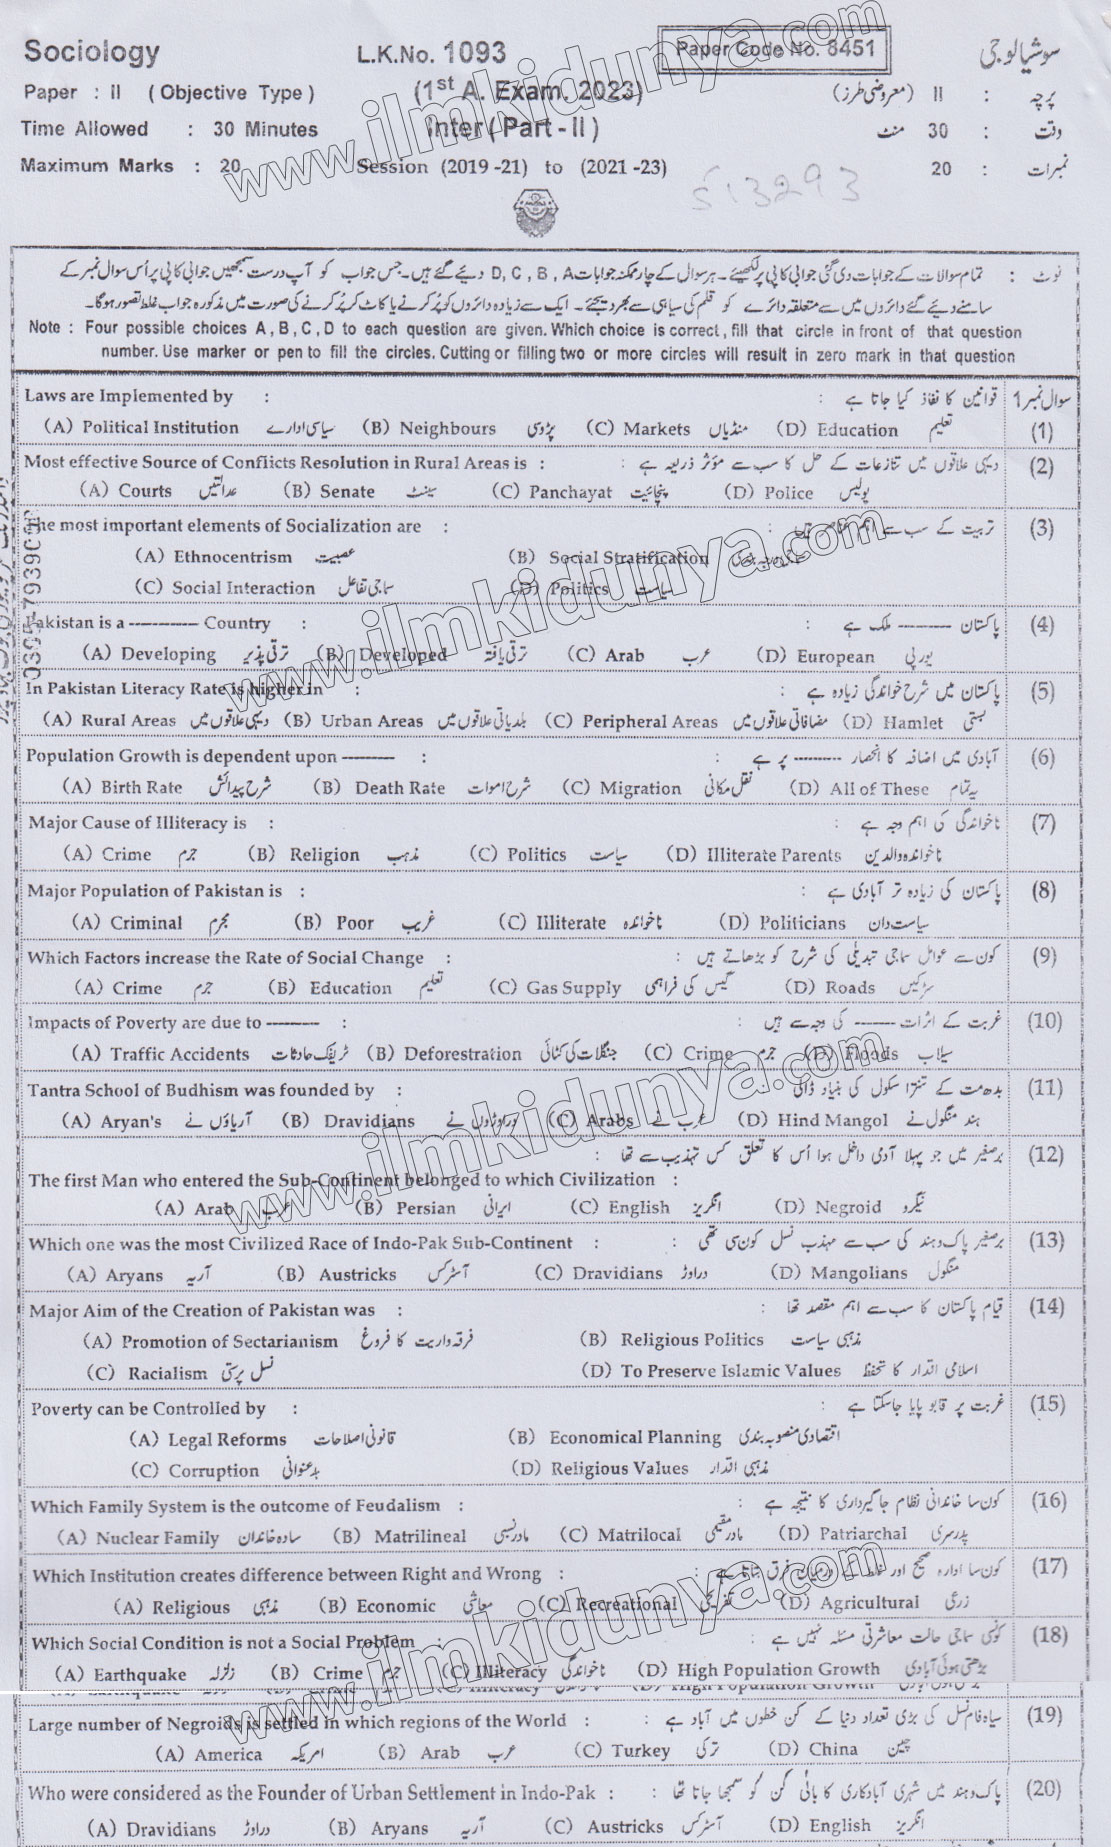 Sociology L.K.No. 1093 Paper Code No. 8451 سوشیالوجی
Paper : II ( Objective Type ) (1st A. Exam. 2023) پرچہ : II (معروضی طرز)
Time Allowed : 30 Minutes Inter ( Part - II ) وقت : 30 منٹ
Maximum Marks : 20 Session (2019 -21) to (2021 -23) نمبرات : 20
نوٹ : تمام سوالات کے جوابات دی گئی جوابی کاپی پر لکھیئے۔ ہر سوال کے چار ممکنہ جوابات D , C , B , A دیئے گئے ہیں۔ جس جواب کو آپ درست سمجھیں جوابی کاپی پر اُس سوال نمبر کے
سامنے دیئے گئے دائروں میں سے متعلقہ دائرے کو قلم کی سیاہی سے بھر دیجئے۔ ایک سے زیادہ دائروں کو پُر کرنے یا کاٹ کر پُر کرنے کی صورت میں مذکورہ جواب غلط تصور ہوگا۔
Note : Four possible choices A , B , C , D to each question are given. Which choice is correct , fill that circle in front of that question
number. Use marker or pen to fill the circles. Cutting or filling two or more circles will result in zero mark in that question
Laws are Implemented by : قوانین کا نفاذ کیا جاتا ہے : سوال نمبر 1
(A) Political Institution سیاسی ادارے (B) Neighbours پڑوسی (C) Markets منڈیاں (D) Education تعلیم (1)
Most effective Source of Conflicts Resolution in Rural Areas is : دیہی علاقوں میں تنازعات کے حل کا سب سے مؤثر ذریعہ ہے : (2)
(A) Courts عدالتیں (B) Senate سینٹ (C) Panchayat پنچائیت (D) Police پولیس
The most important elements of Socialization are : تربیت کے سب سے اہم عناصر ہیں : (3)
(A) Ethnocentrism عصبیت (B) Social Stratification
(C) Social Interaction سماجی تفاعل (D) Politics سیاست
Pakistan is a ----------- Country : پاکستان --------- ملک ہے : (4)
(A) Developing ترقی پذیر (B) Developed ترقی یافتہ (C) Arab عرب (D) European یورپی
In Pakistan Literacy Rate is higher in : پاکستان میں شرح خواندگی زیادہ ہے : (5)
(A) Rural Areas دیہی علاقوں میں (B) Urban Areas بلدیاتی علاقوں میں (C) Peripheral Areas مضافاتی علاقوں میں (D) Hamlet بستی
Population Growth is dependent upon --------- : آبادی میں اضافہ کا انحصار --------- پر ہے : (6)
(A) Birth Rate شرح پیدائش (B) Death Rate شرح اموات (C) Migration نقل مکانی (D) All of These یہ تمام
Major Cause of Illiteracy is : ناخواندگی کی اہم وجہ ہے : (7)
(A) Crime جرم (B) Religion مذہب (C) Politics سیاست (D) Illiterate Parents ناخواندہ والدین
Major Population of Pakistan is : پاکستان کی زیادہ تر آبادی ہے : (8)
(A) Criminal مجرم (B) Poor غریب (C) Illiterate ناخواندہ (D) Politicians سیاست دان
Which Factors increase the Rate of Social Change : کون سے عوامل سماجی تبدیلی کی شرح کو بڑھاتے ہیں : (9)
(A) Crime جرم (B) Education تعلیم (C) Gas Supply گیس کی فراہمی (D) Roads سڑکیں
Impacts of Poverty are due to --------- : غربت کے اثرات ------- کی وجہ سے ہیں : (10)
(A) Traffic Accidents ٹریفک حادثات (B) Deforestration جنگلات کی کٹائی (C) Crime جرم (D) Floods سیلاب
Tantra School of Budhism was founded by : بدھ مت کے تنترا سکول کی بنیاد ڈالی : (11)
(A) Aryan's آریاؤں نے (B) Dravidians دراوڑوں نے (C) Arabs عرب نے (D) Hind Mangol ہند منگول نے
برصغیر میں جو پہلا آدمی داخل ہوا اُس کا تعلق کس تہذیب سے تھا : (12)
The first Man who entered the Sub-Continent belonged to which Civilization :
(A) Arab عرب (B) Persian ایرانی (C) English انگریز (D) Negroid نیگرو
Which one was the most Civilized Race of Indo-Pak Sub-Continent : برصغیر پاک و ہند کی سب سے مہذب نسل کون سی تھی : (13)
(A) Aryans آریہ (B) Austricks آسٹرکس (C) Dravidians دراوڑ (D) Mangolians منگول
Major Aim of the Creation of Pakistan was : قیام پاکستان کا سب سے اہم مقصد تھا : (14)
(A) Promotion of Sectarianism فرقہ واریت کا فروغ (B) Religious Politics مذہبی سیاست
(C) Racialism نسل پرستی (D) To Preserve Islamic Values اسلامی اقدار کا تحفظ
Poverty can be Controlled by : غربت پر قابو پایا جاسکتا ہے : (15)
(A) Legal Reforms قانونی اصلاحات (B) Economical Planning اقتصادی منصوبہ بندی
(C) Corruption بدعنوانی (D) Religious Values مذہبی اقدار
Which Family System is the outcome of Feudalism : کون سا خاندانی نظام جاگیرداری کا نتیجہ ہے : (16)
(A) Nuclear Family سادہ خاندان (B) Matrilineal مادر نسبی (C) Matrilocal مادر مقیمی (D) Patriarchal پدرسری
Which Institution creates difference between Right and Wrong : کون سا ادارہ صحیح اور غلط کے درمیان فرق بتاتا ہے : (17)
(A) Religious مذہبی (B) Economic معاشی (C) Recreational تفریحی (D) Agricultural زرعی
Which Social Condition is not a Social Problem : کونسی سماجی حالت معاشرتی مسئلہ نہیں ہے : (18)
(A) Earthquake زلزلہ (B) Crime جرم (C) Illiteracy ناخواندگی (D) High Population Growth بڑھتی ہوئی آبادی
Large number of Negroids is settled in which regions of the World : سیاہ فام نسل کی بڑی تعداد دنیا کے کن خطوں میں آباد ہے : (19)
(A) America امریکہ (B) Arab عرب (C) Turkey ترکی (D) China چین
Who were considered as the Founder of Urban Settlement in Indo-Pak : پاک و ہند میں شہری آبادکاری کا بانی کن کو سمجھا جاتا تھا : (20)
(A) Dravidians دراوڑ (B) Aryans آریہ (C) Austricks آسٹرکس (D) English انگریز
www.ilmkidunya.com
www.ilmkidunya.com
www.ilmkidunya.com
www.ilmkidunya.com